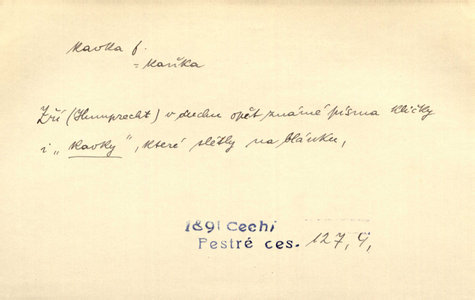 kavka f.
= kaňka
Zří (Humprecht) v duchu opět známé písmo kličky
i „kavky“, které slétly na blánku,
1891 Čech
Pestré ces. 127, 4,